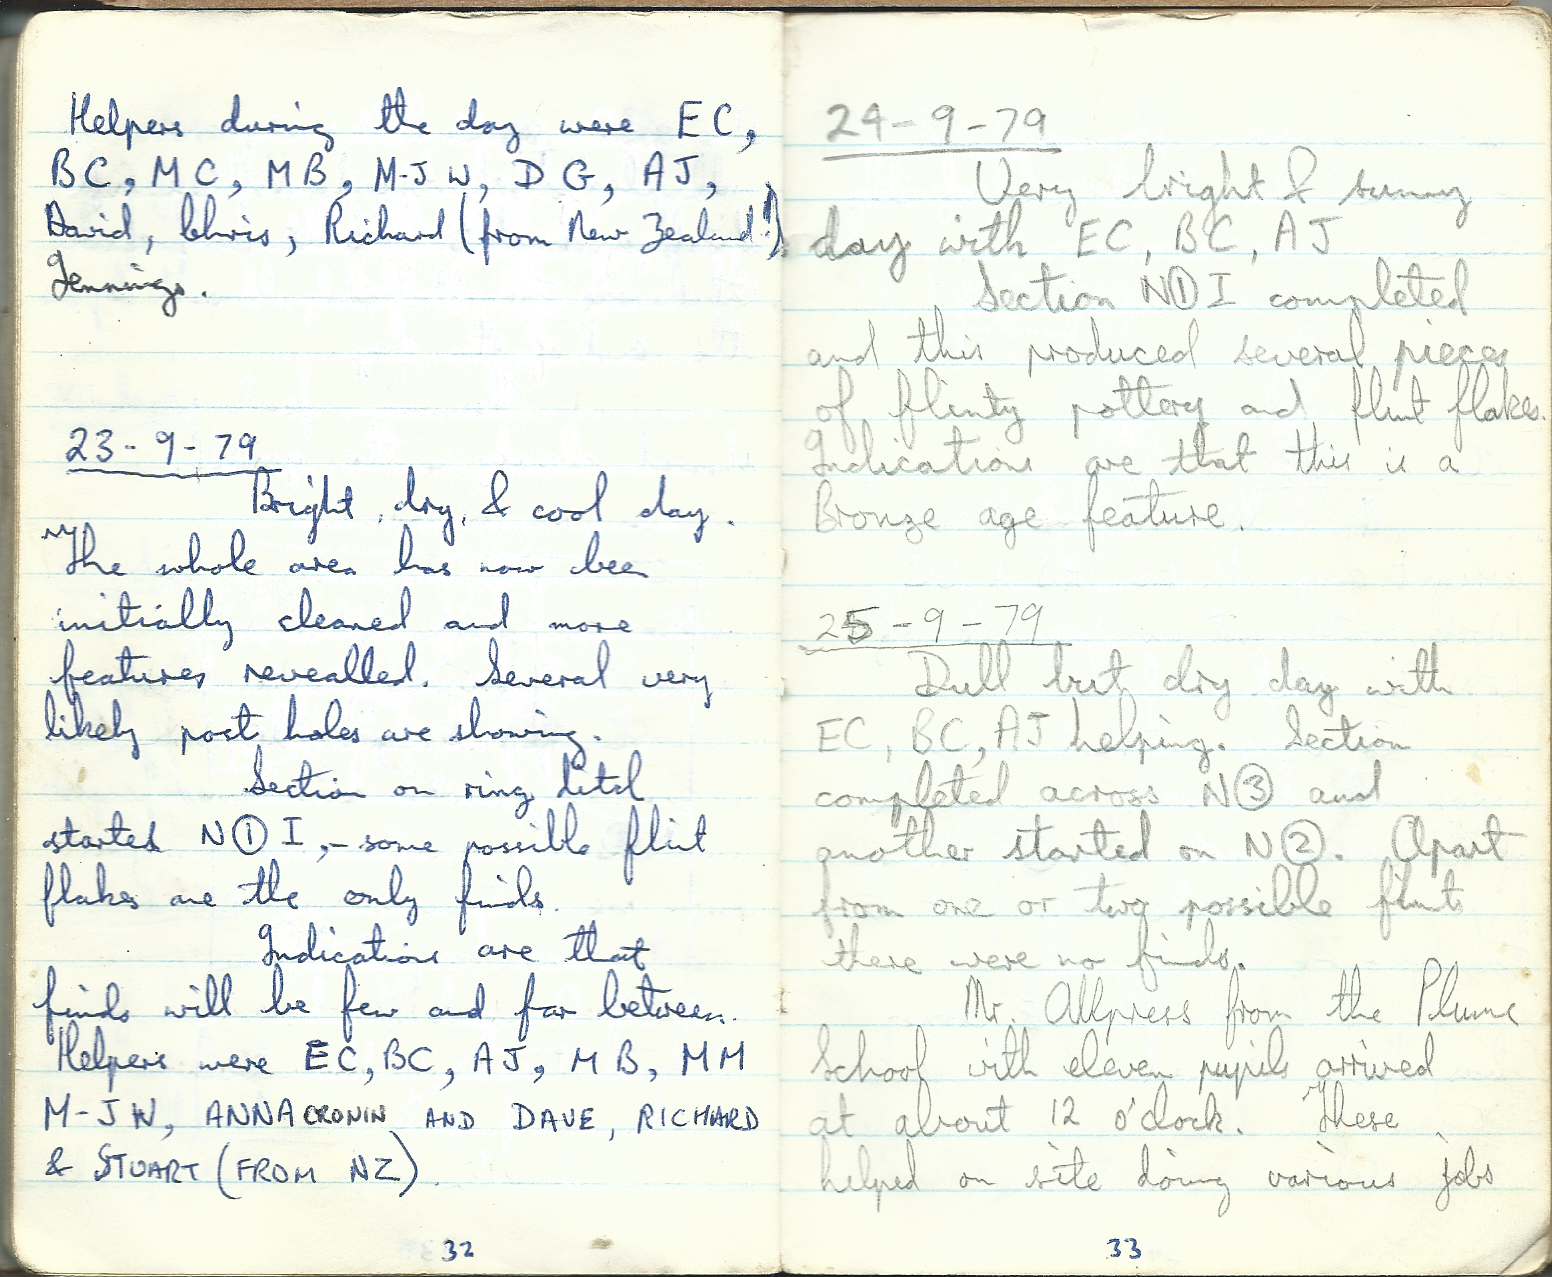 Helpers during the day were EC,
BC, MC, MB, M-JW, DG, AJ,
David, Chris, Richard (from New Zealand!),
Jennings.
23-9-79
Bright, dry, & cool day.
The whole area has now been
initially cleaned and more
features revealled. Several very
likely post holes are showing.
Section on ring ditch
started N① I, - some possible flint
flakes are the only finds.
Indications are that
finds will be few and far between.
Helpers were EC, BC, AJ, MB, MM
M-JW, ANNA CRONIN AND DAVE, RICHARD
& STUART (FROM NZ).
32
24-9-79
Very bright & sunny
day with EC, BC, AJ
Section N① I completed
and this produced several pieces
of flinty pottery and flint flakes.
Indications are that this is a
Bronze age feature.
25-9-79
Dull but dry day with
EC, BC, AJ helping. Section
completed across N③ and
another started on N②. Apart
from one or two possible flints
there were no finds.
Mr. Allpress from the Plume
School with eleven pupils arrived
at about 12 o'clock. These
helped on site doing various jobs
33